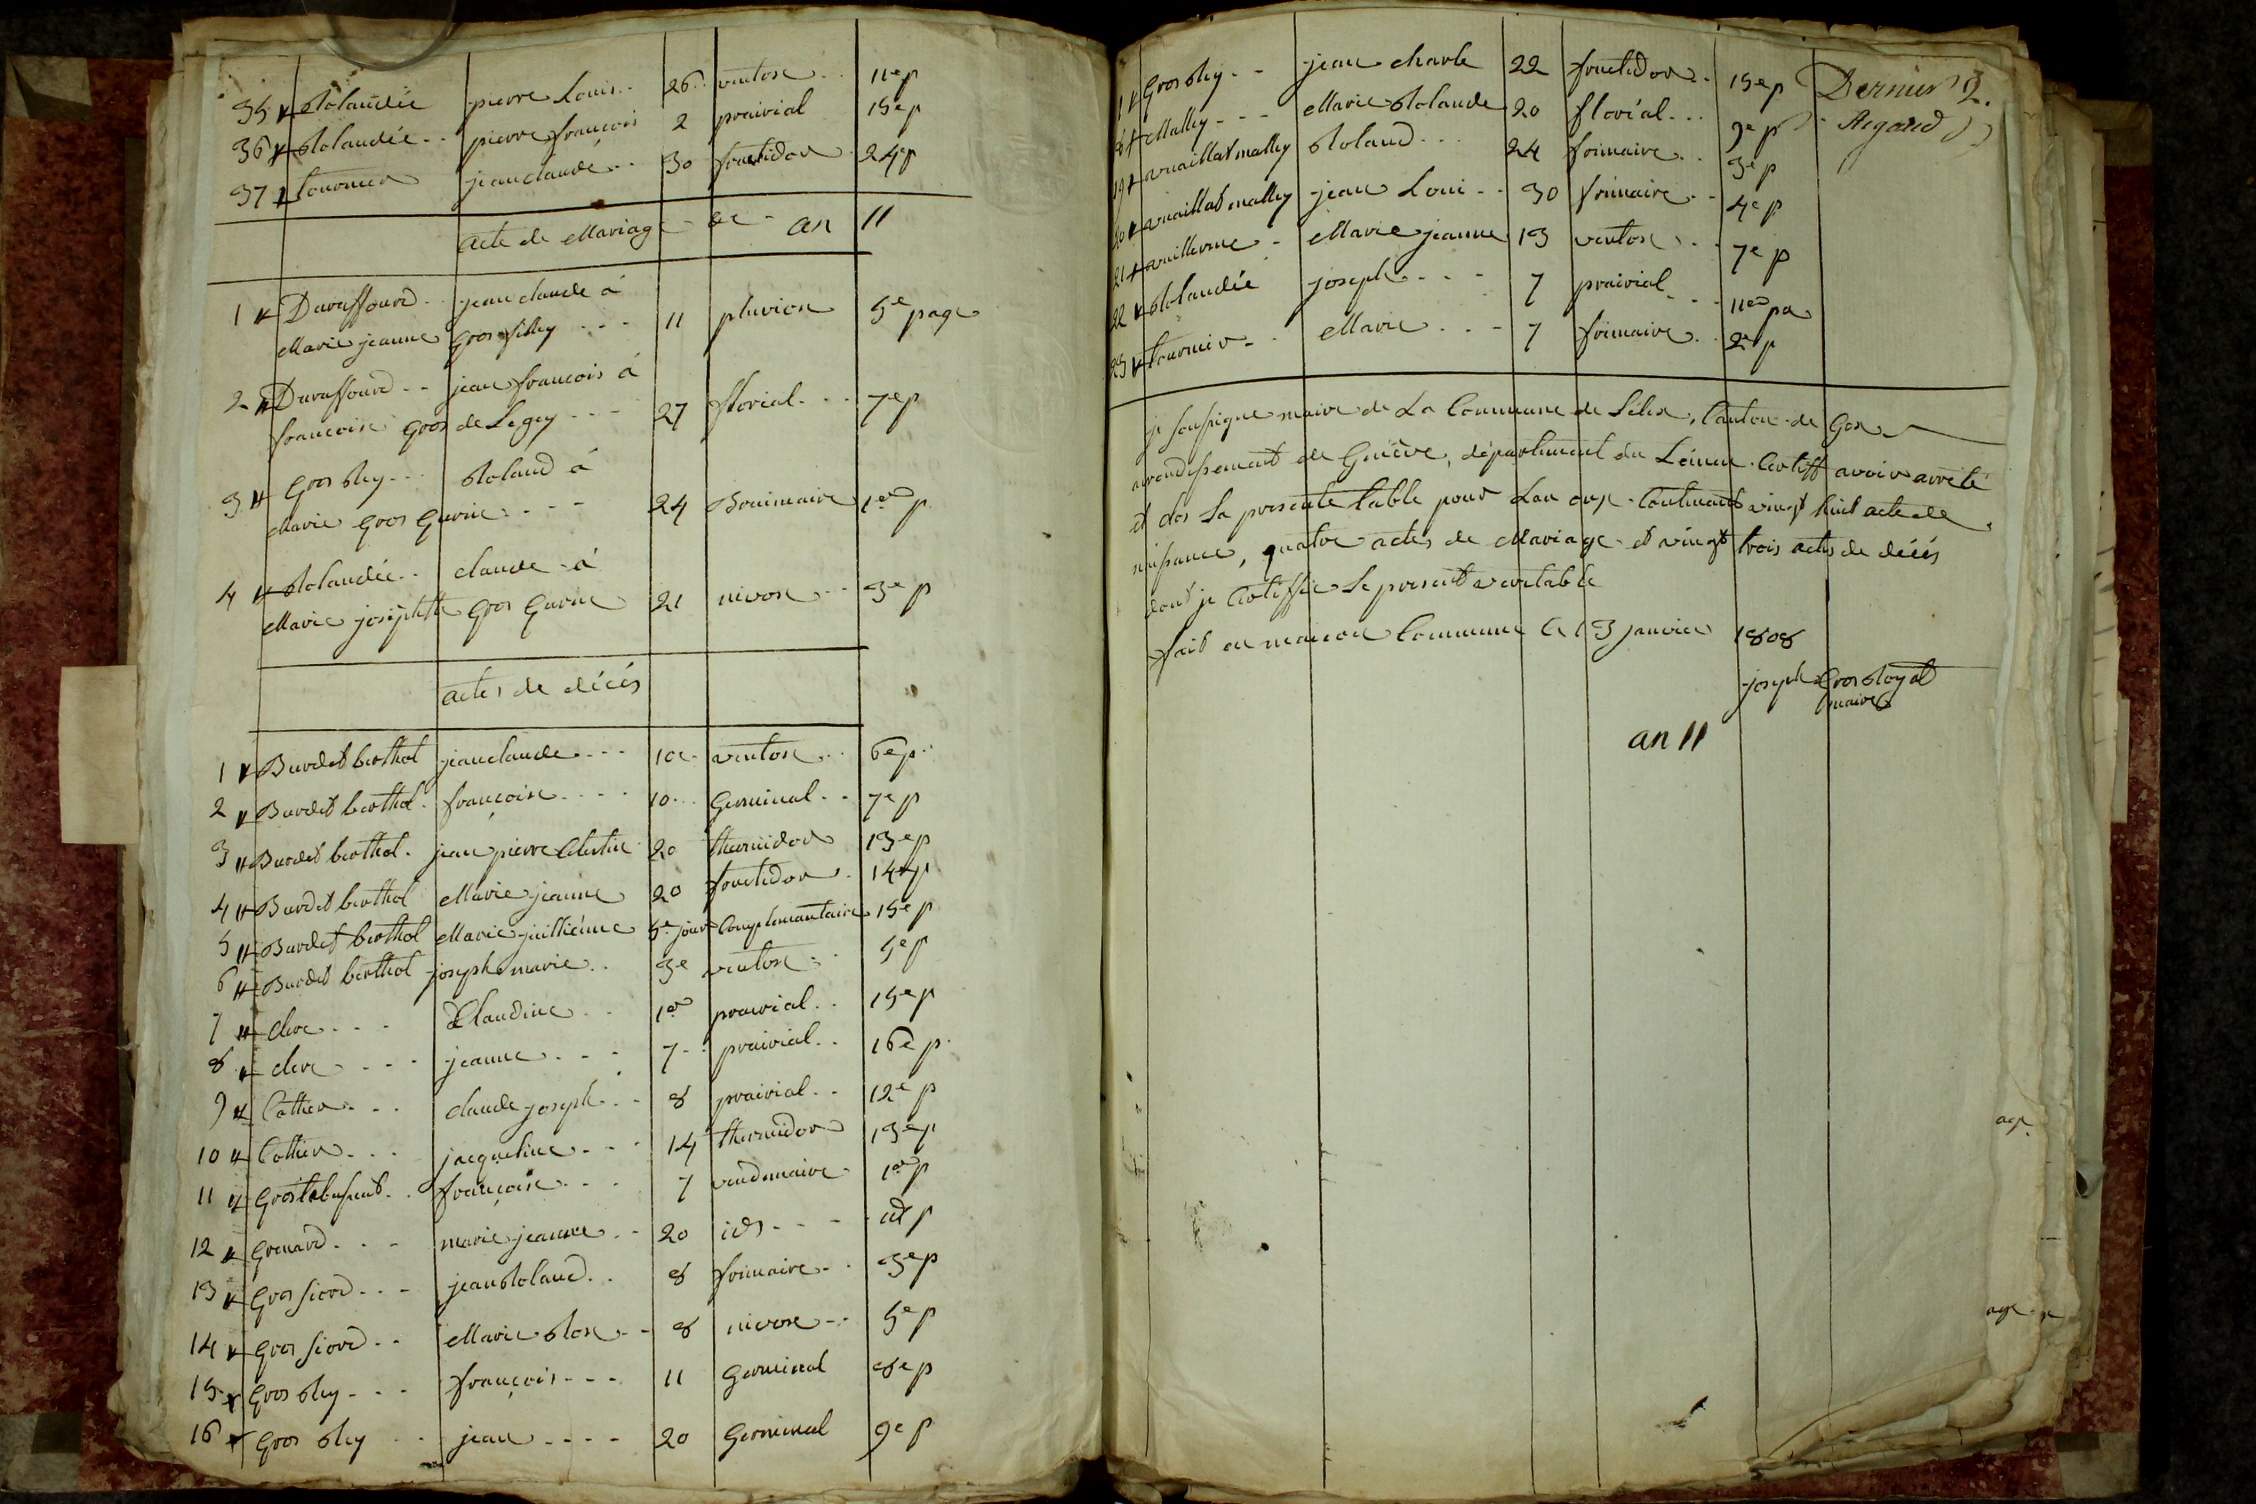 35 Rolandéé pierre Louis 26 ventose 11e p
36 Rolandéé pierre françois 2 prairial 15e p
37 tournier jean claude 30 fructidor 24e p
acte de Mariage an 11
1 Duraffourd jean claude á
Marie jeanne Gros filley 11 pluviose 5e page
2 Duraffourd jean françois á
francoise Gros de Legey 27 florial 7e p
3 Gros Rey Roland á
Marie Gros Gurin 24 Brumaire 1er p
4 Rolandéé claude á
Marie josephette Gros Gurin 21 nivose 3e p
actes de décés
1 Burdet berthol jean claude 10 ventose 6e p
2 Burdet berthol françoise 10 Germinal 7e p
3 Burdet berthol jean pierre Celestin 20 thermidor 13e p
4 Burdet berthol Marie jeanne 20 fructidor 14e p
5 Burdet berthol Marie jullienne 5e jour Complemantaire 15e p
6 Burdet berthol joseph marie 3e ventose 5e p
7 clerc Claudine 1er prairial 15e p
8 clerc jeanne 7 prairial 16e p
9 Cottier claude joseph 8 prairial 12e p
10 Cottier jacqueline 14 thermidor 13e p
11 françoise 7 vendmaire 1er p
12 Grenard marie jeanne 20 ids id p
13 Gros fiord jean Roland 8 frimaire 3e p
14 Gros fiord Marie Rose 8 nivose 5e p
15 Gros Rey françois 11 Germinal 8e p
16 Gros Rey jean 20 Germinal 9e p
Gros Rey jean charle 22 fructidor 15e p Dernier 2.
Malley Marie Rolande 20 florial 9e p
19 vuaillat malley Roland 24 frimaire 3e p
20 vuaillat malley jean Loui 30 frimaire 4e p
21 vuillerme Marie jeanne 13 ventose 7e p
22 Rolandéé joseph 7 prairial 11e pa
23 tournier Marie 7 frimaire 2e p
je soussigne maire de La Commune de Lélex, Canton de Gex
arrondissement de Genève, département du Léman Certiff avoir arrêté
et clos La presente table pour Lan onze Contenant vingt huit acte de
naissance, quatre actes de Mariage et vingt trois actes de décés
dont je Certiffie Le present veritable
fait en maison Commune Ce 13 janvier 1808
joseph Gros Royat
maire
an 11